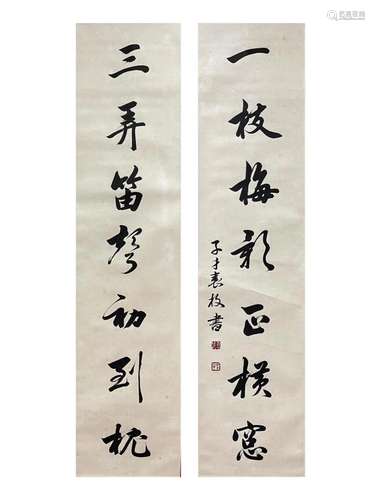 三弄笛聲初到枕
一枝梅影正橫窗
子才袁枚書